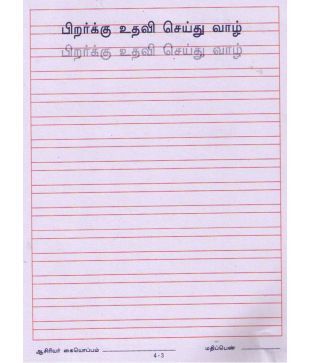 பிறர்க்கு உதவி செய்து வாழ்
பிறர்க்கு உதவி செய்து வாழ்
ஆசிரியர் கையொப்பம்
4-3
மதிப்பெண்